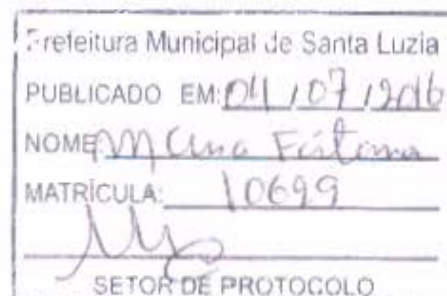 Prefeitura Municipal de Santa Luzia
PUBLICADO EM: 04 / 07 / 2016
NOME Fátima
MATRÍCULA: 10699
SETOR DE PROTOCOLO